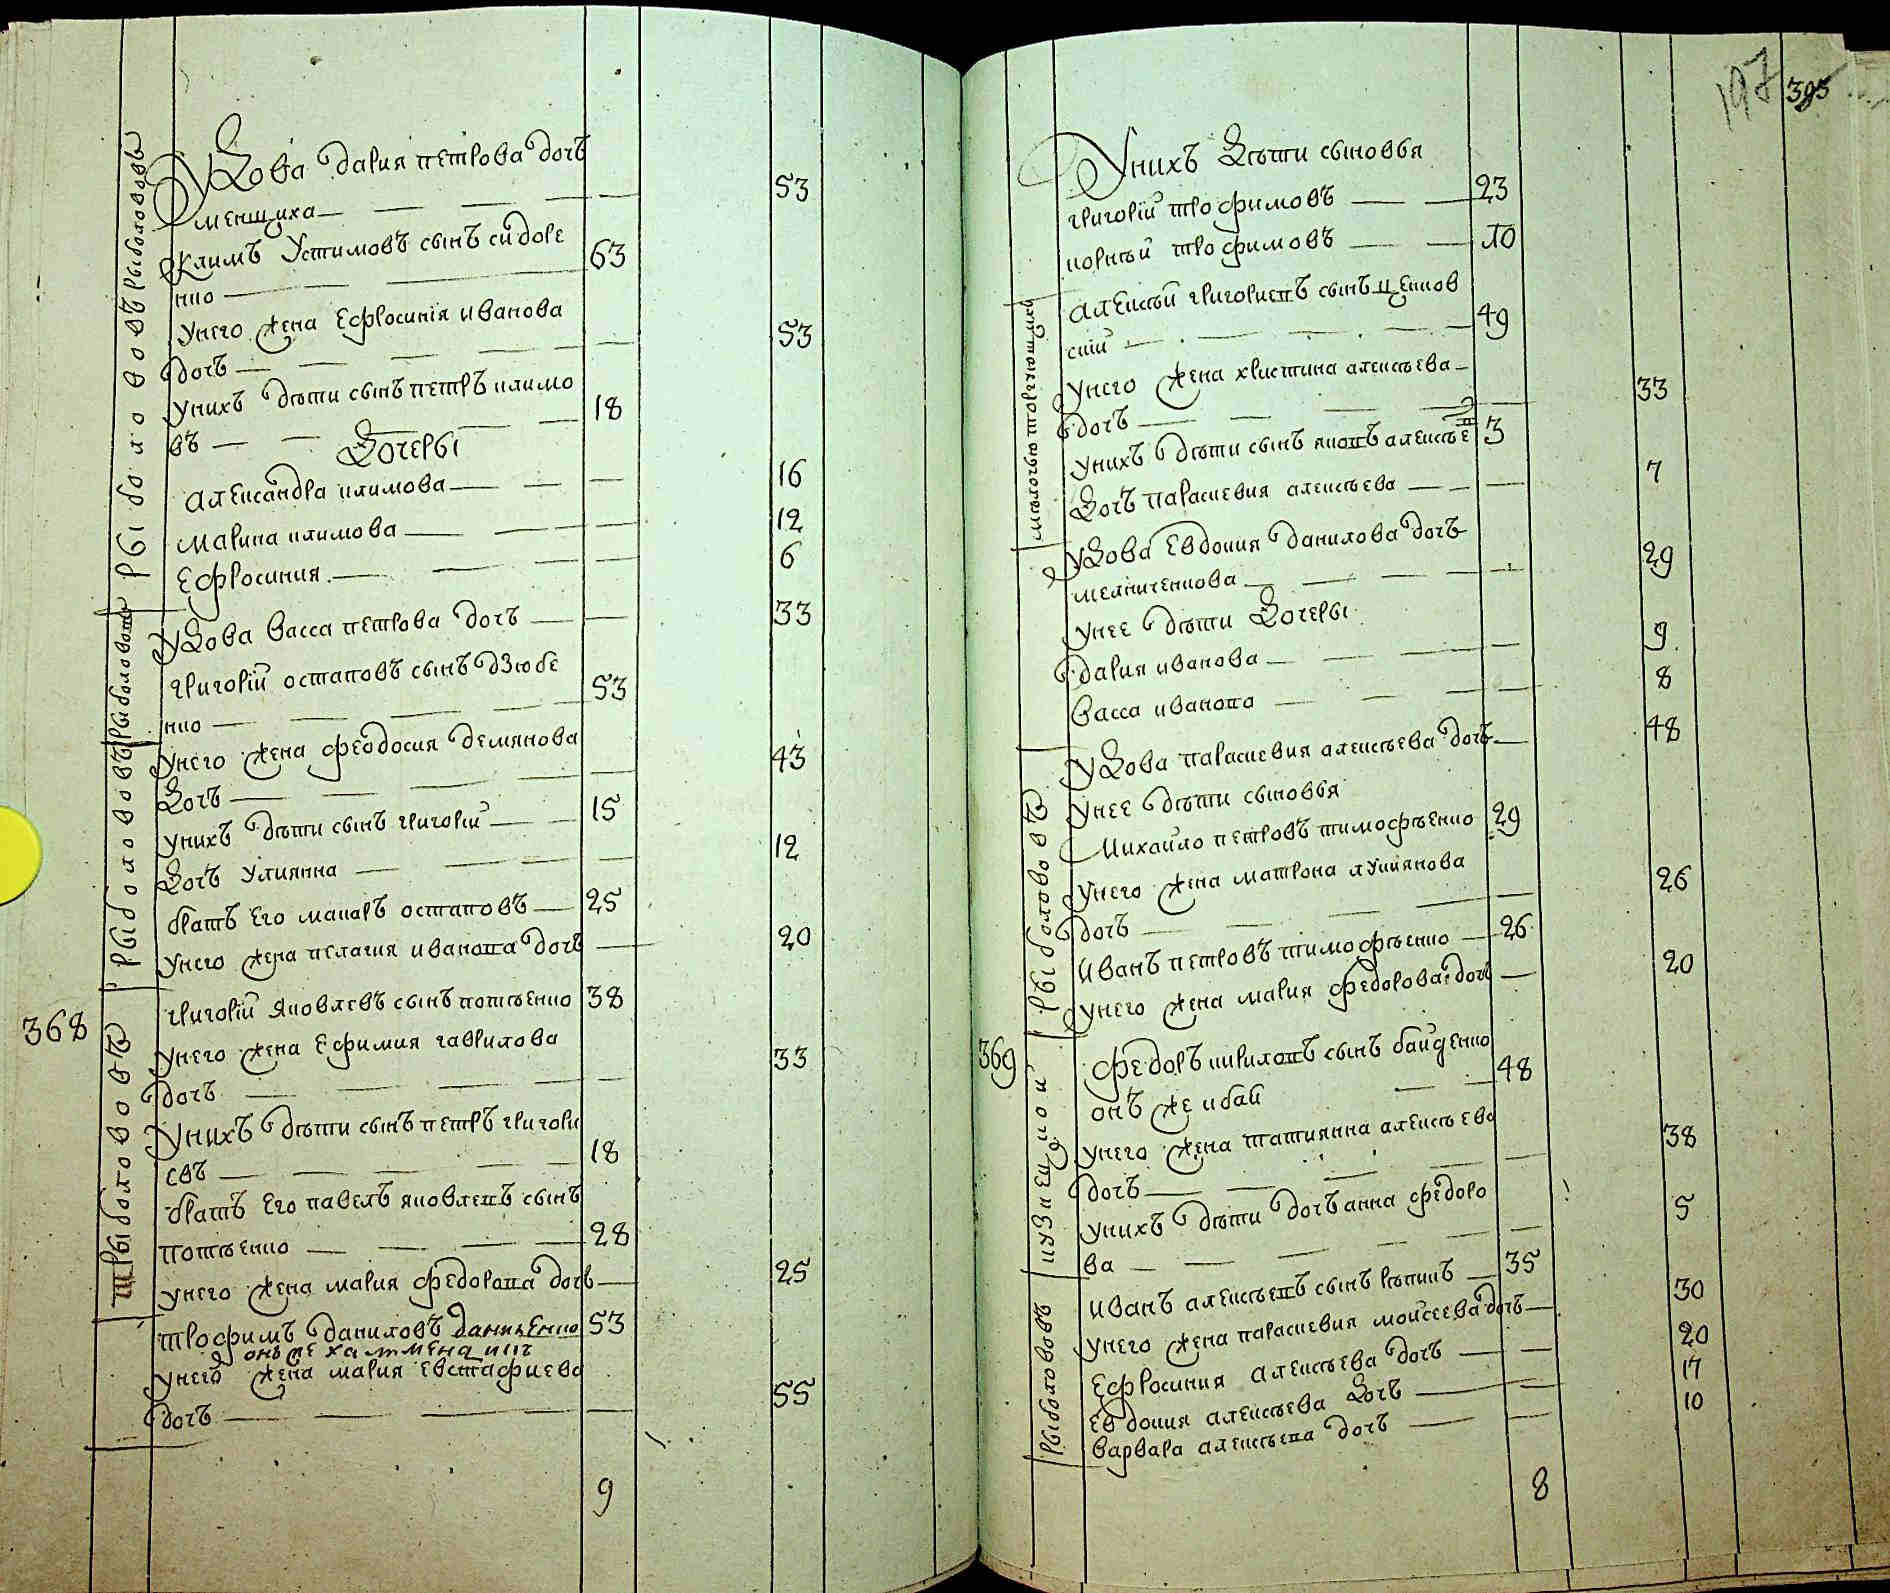 Удова дария петрова дочь
менщиха 53
Климъ Устимовъ сынъ сидоре
нко 63
унего жена Ефросиния иванова
дочь 53
унихъ дѣти сынъ петръ климо
въ 18
дочеры
александра климова 16
марина климова 12
Ефросиния 6
удова васса петрова дочь 33
григорїй остаповъ сынъ дзюбе
нко 53
унего жена феодосия демянова
дочь 43
унихъ дѣти сынъ григорїй 15
дочь улиянна 12
братъ Его макаръ остаповъ 25
унего жена пелагия иванова дочь 20
368
григорїй яковлевъ сынъ потѣенко 38
унего жена Ефимия гаврилова
дочь 33
унихъ дѣти сынъ петръ григори
евъ 18
братъ Его павелъ яковлевъ сынъ
потѣенко 28
унего жена мария федорова дочь 25
трофимъ даниловъ даниленко 53
онъ же
унего жена мария Евстафиева
дочь 55
9
рыболововъ рыболововъ
рыболововъ
рыболововъ
рыболововъ
197 395
Унихъ дѣти сыновья
григорїй трофимовъ 23
корнѣй трофимовъ 10
алексѣй григориевъ сынъ
ский 49
унего жена христина алексѣева
дочь 33
унихъ дѣти сынъ яковъ алексѣе
въ 3
дочь параскевия алексѣева 7
удова Евдокия данилова дочь
мелниченкова 29
унее дѣти дочеры
дария иванова 9
васса иванова 8
удова параскевия алексѣева дочь 48
унее дѣти сыновья
михайло петровъ тимофѣенко 29
унего жена матрона лукиянова
дочь 26
иванъ петровъ тимофѣенко 26
унего жена мария федорова дочь 20
369
федоръ кириловъ сынъ байденко
онъ же кбай 48
унего жена татиянна алексѣева
дочь 38
унихъ дѣти дочь анна федоро
ва 5
иванъ алексѣевъ сынъ рѣпикъ 35
унего жена параскевия моисеева дочь 30
Ефросиния алексѣева дочь 20
евдокия алексѣева дочь 17
варвара алексѣева дочь 10
8
мѣлочью торгующихъ
рыболововъ
кузнецкой
рыболововъ